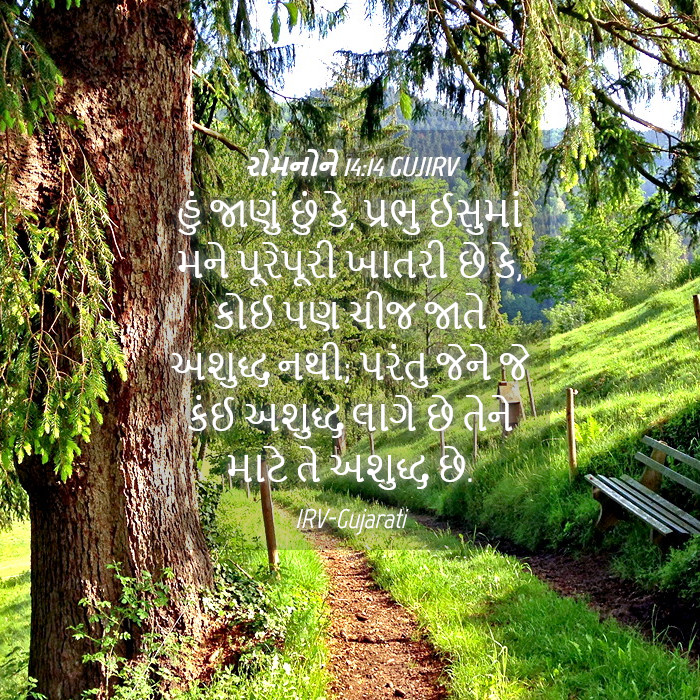 રોમનોને 14:14 GUJIRV
હું જાણું છું કે, પ્રભુ ઈસુમાં
મને પૂરેપૂરી ખાતરી છે કે,
કોઈ પણ ચીજ જાતે
અશુદ્ધ નથી; પરંતુ જેને જે
કંઈ અશુદ્ધ લાગે છે તેને
માટે તે અશુદ્ધ છે.
IRV-Gujarati